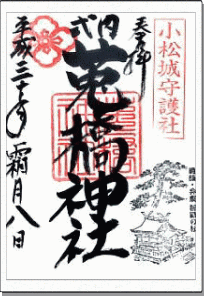 奉拝
小松城守護社
式内
菟橋神社
平成三十年
霜月八日